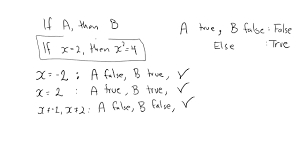 If A, then B
If x=2, then x²=4
x=-2 : A false, B true, ✓
x=2 : A true, B true, ✓
x≠-2, x≠2 : A false, B false, ✓
A true, B false : False
Else : True